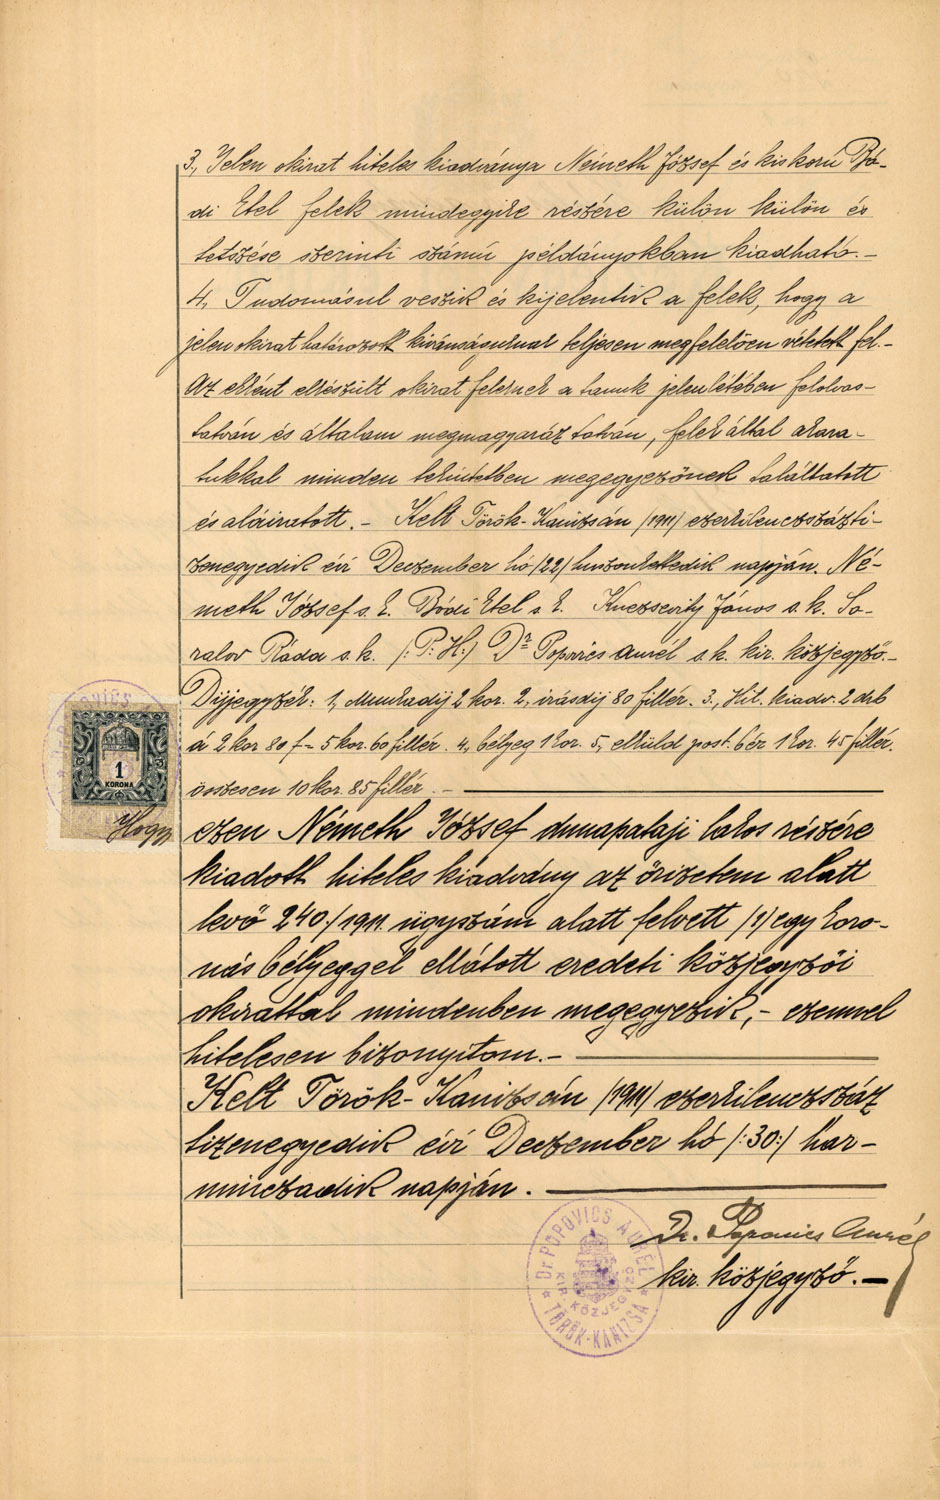 3., Jelen okirat hiteles kiadványa Németh József és kiskorú Bó-
di Etel felek mindegyike részére külön külön és
tetszése szerinti számú példányokban kiadható.-
4, Tudomásul veszik és kijelentik a felek, hogy a
jelen okirat határozott kivánságuknak teljesen megfelelően vétetett fel.-
Az ekként elkészült okirat feleknek a tanuk jelenlétében felolvas-
tatván és általam megmagyaráztatván, felek által akara-
tukkal minden tekintetben megegyezőnek találtatott
és aláiratott.- Kelt Török-Kanizsán /1911/ ezerkilenczszázti-
zenegyedik évi Deczember hó /22/ huszonkettedik napján. Né-
meth József s. k. Bódi Etel s. k. Knezsevity János s. k. Sa-
ralov Ráda s. k. /: P. H:/ Dr Popovics Aurél s. k. kir. közjegyző.-
Dijjegyzék: 1, Munkadij 2 kor. 2, irásdij 80 fillér. 3., Hit. kiadv. 2 drb
á 2 kor 80 f = 5 kor. 60 fillér. 4, bélyeg 1 kor. 5, elküld post. bér 1 kor. 45 fillér.
összesen 10 kor. 85 fillér.-
1
KORONA
Hogy
ezen Németh József dunapataji lakos részére
kiadott hiteles kiadvány az őrizetem alatt
levő 240./1911. ügyszám alatt felvett /1/ egy koro-
nás bélyeggel ellátott eredeti közjegyzői
okirattal mindenben megegyezik,- ezennel
hitelesen bizonyitom.-
Kelt Török-Kanizsán /1911/ ezerkilenczszáz
tizenegyedik évi Deczember hó /:30:/ har-
minczadik napján.
Dr. Popovics Aurél
kir. közjegyző.-
Dr POPOVICS AURÉL
KIR. KÖZJEGYZŐ
TÖRÖK-KANIZSA